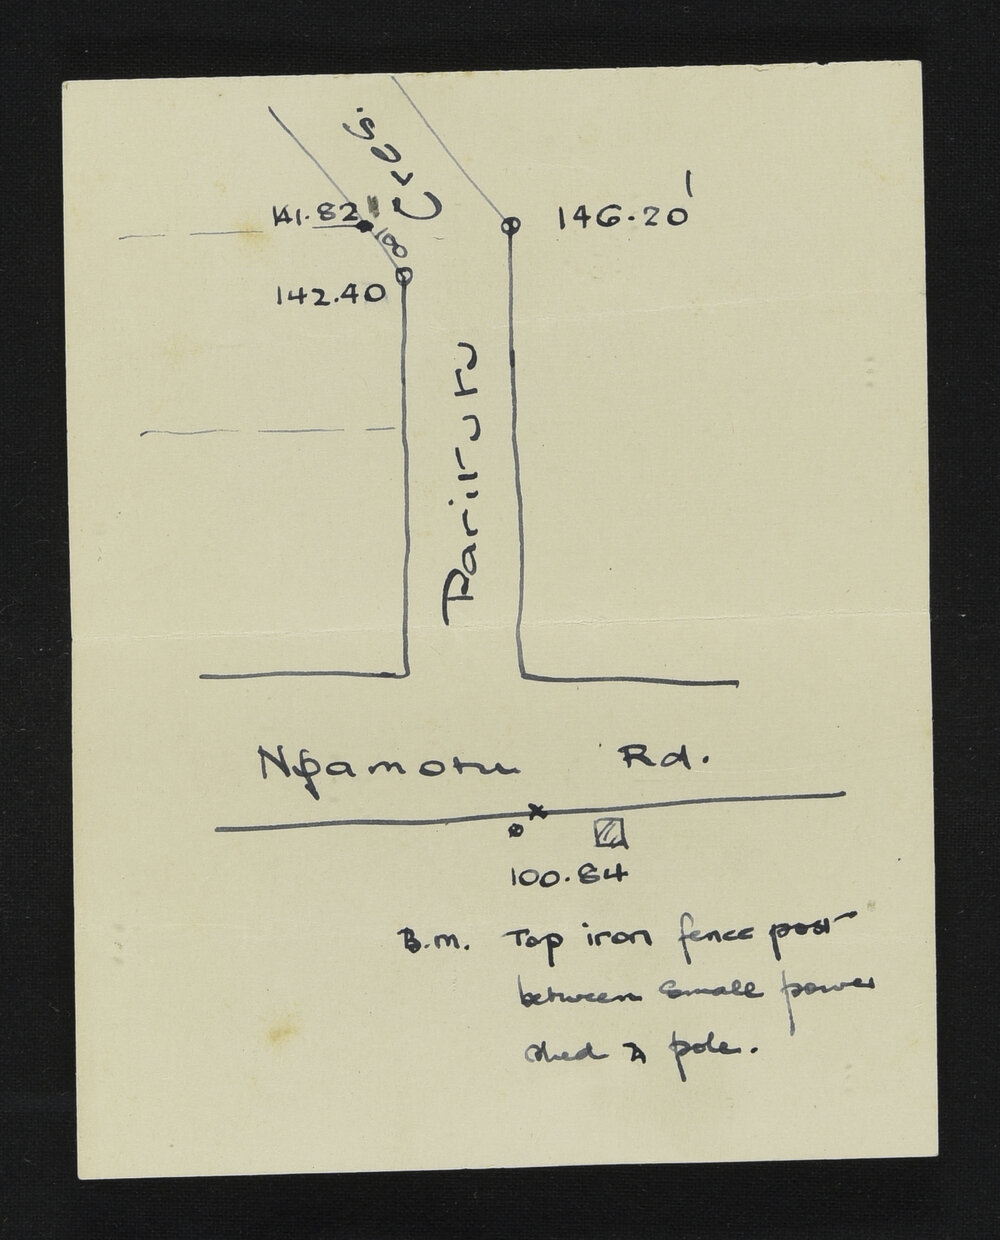 Cres.
141.82
100
146.20'
142.40
Paritutu
Ngamotu Rd.
100.84
B.M. Top iron fence post
between small power
shed & pole.